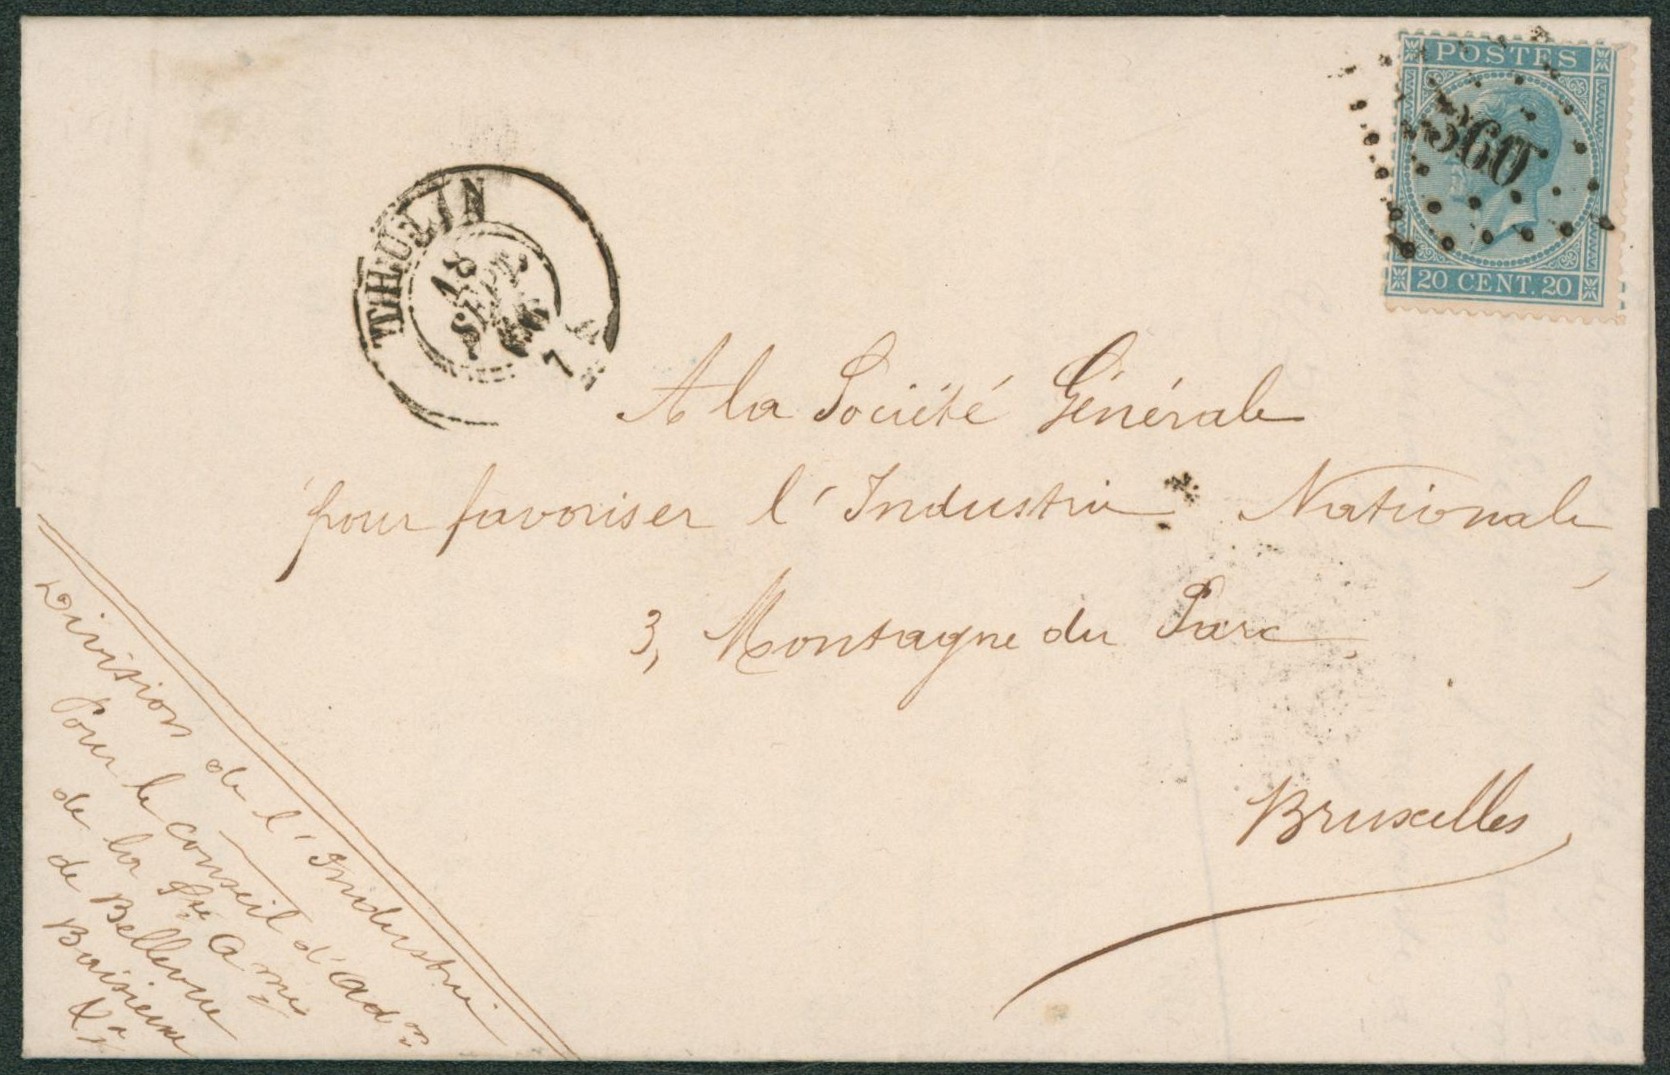 POSTES
360
20 CENT. 20
THULIN
18
SEPT
7
A la Société Générale
pour favoriser l'Industrie Nationale,
3, Montagne du Parc,
Bruxelles
Division de l'Industrie
Pour le conseil d'Adon
de la Sté Ame
de Bellevue
Baisieux